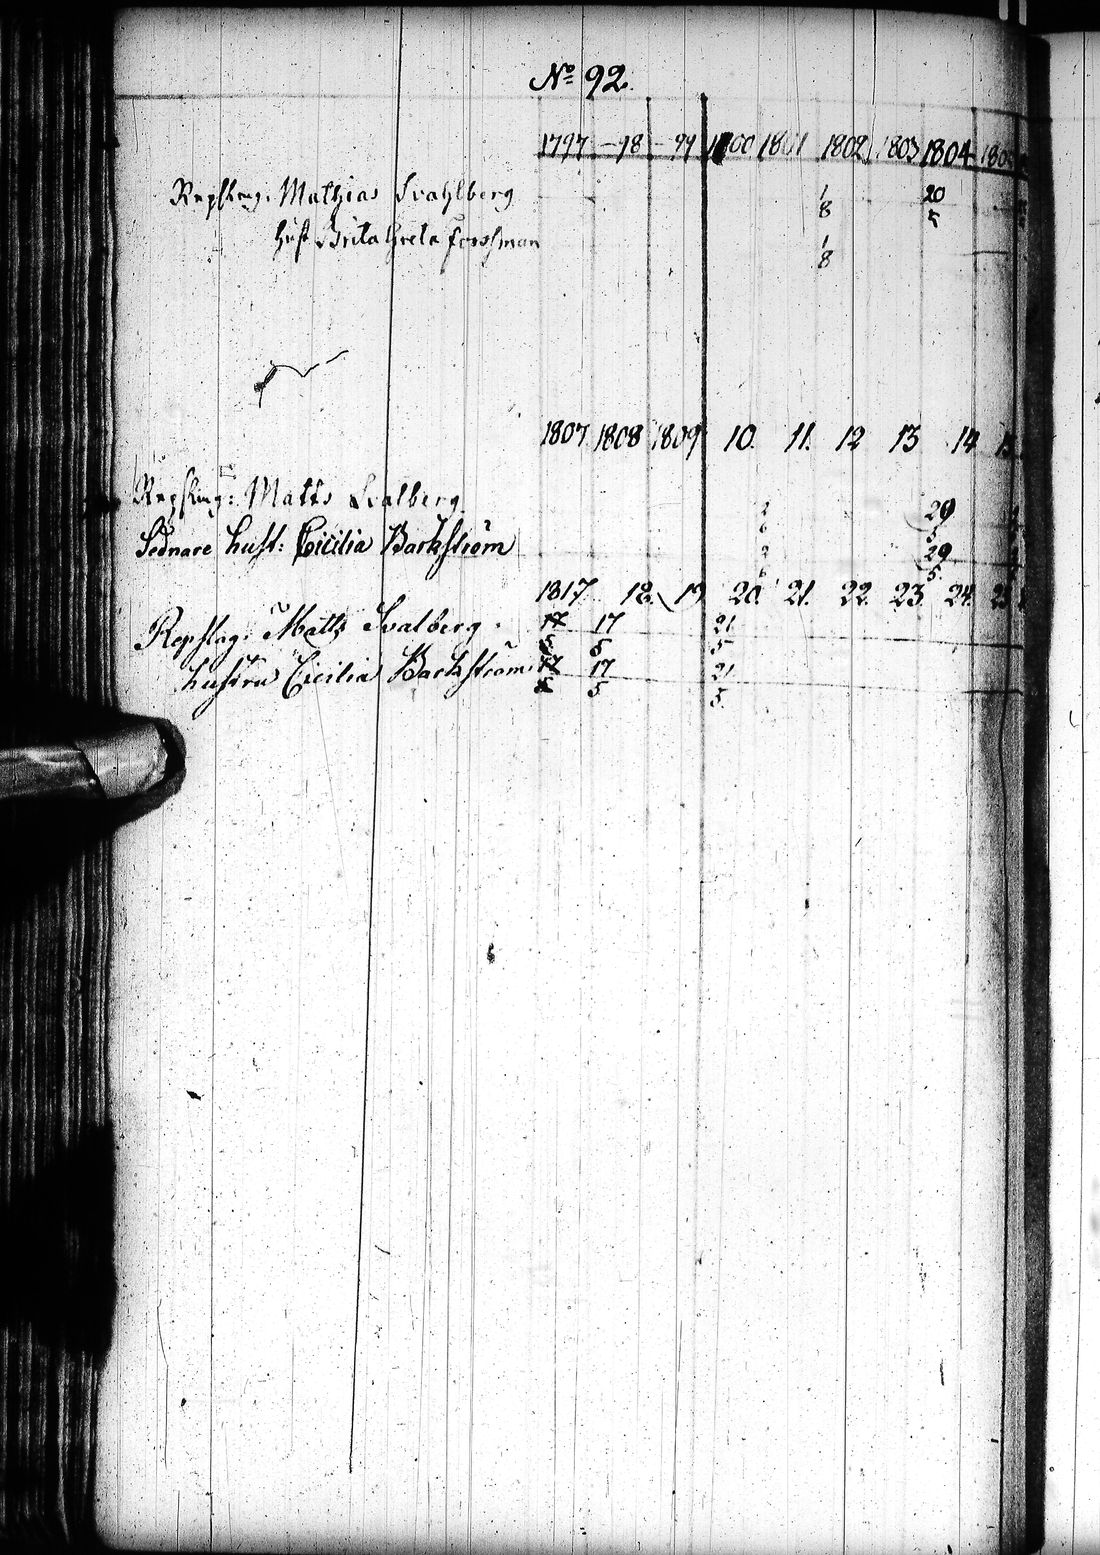 No 92.
1797 -98 -99 1800 1801 1802 1803 1804
Repslag. Mathias Svahlberg 1/8 20
Hust Brita Greta Forssman 1/8
1807 1808 1809 10. 11. 12 13 14
Repslag: Matts Svalberg 29/5
Sednare hust: Cicilia Backström 29/5
1817 18. 19 20. 21. 22. 23. 24. 25
Repslag: Matts Svalberg. 17/5 17/5 21/5
hustru Cicilia Backström 17/5 17/5 21/5